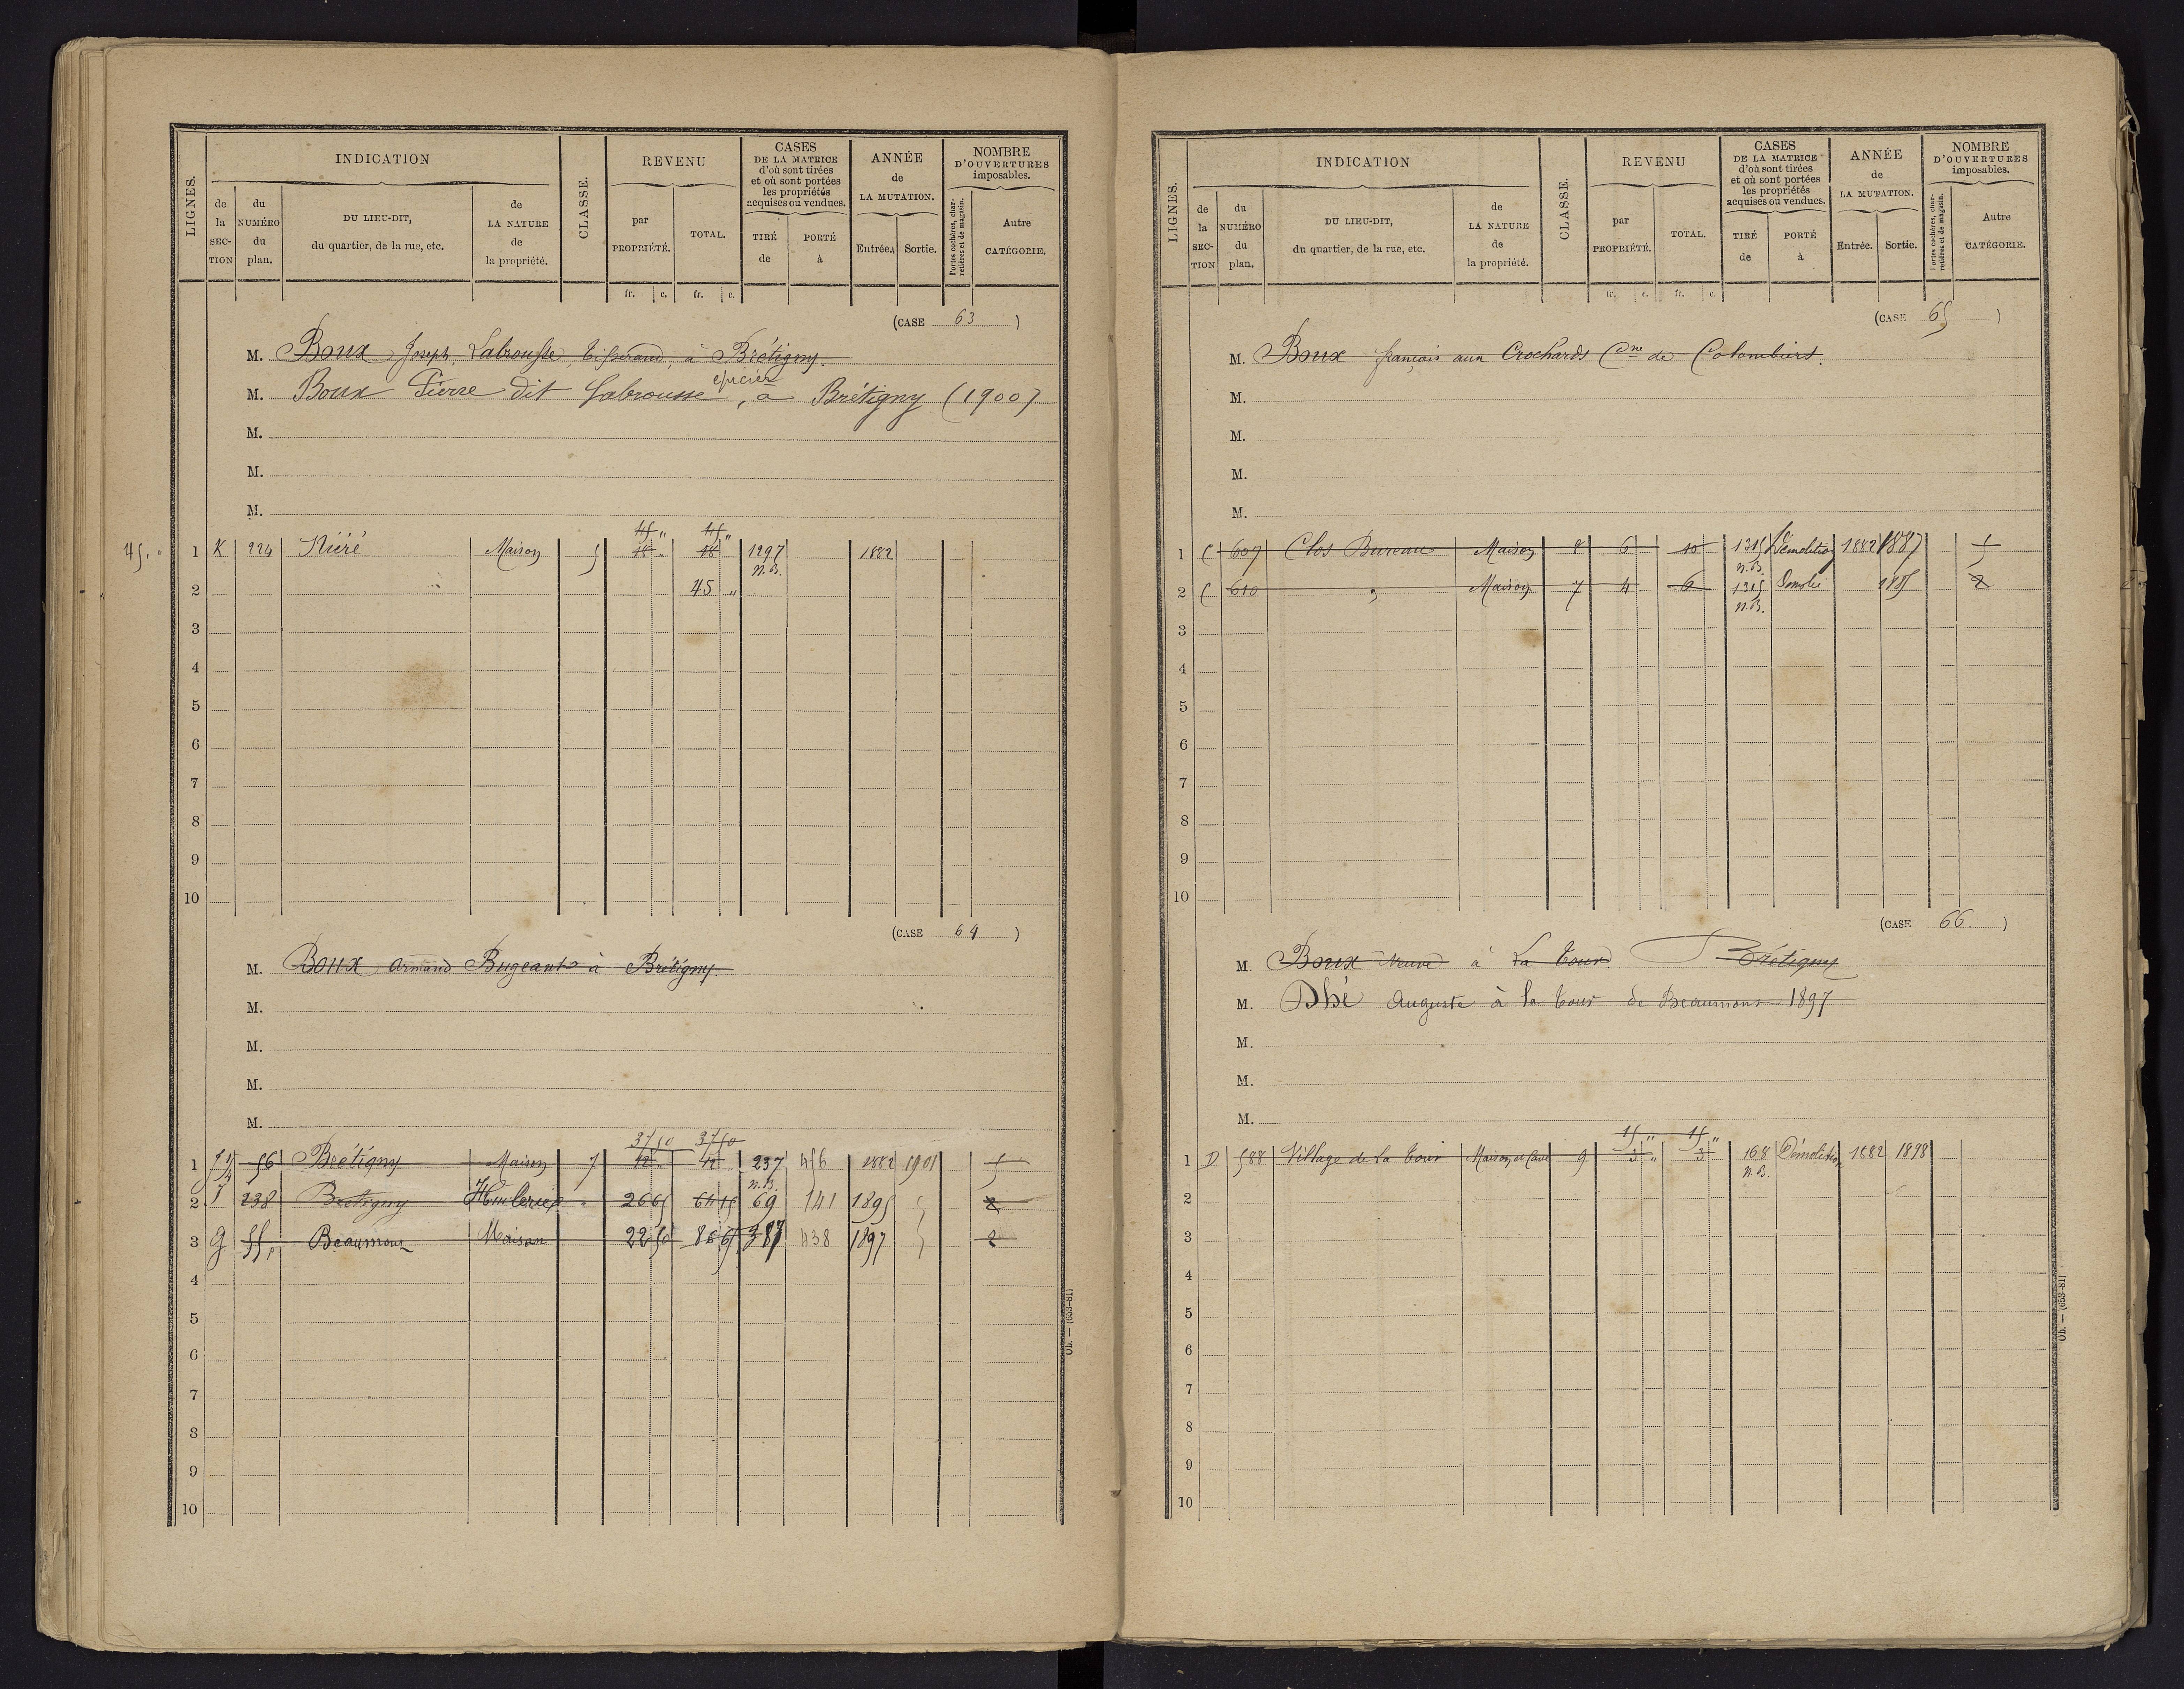 LIGNES. INDICATION CLASSE. REVENU CASES DE LA MATRICE d'où sont tirées et où sont portées les propriétés acquises ou vendues. ANNÉE de LA MUTATION. NOMBRE D'OUVERTURES imposables.
de la SEC-TION du NUMÉRO du plan. DU LIEU-DIT, du quartier, de la rue, etc. de LA NATURE de la propriété. par PROPRIÉTÉ. TOTAL. TIRÉ de PORTÉ à Entrée. Sortie. Portes cochères, charretières et de magasin. Autre CATÉGORIE.
fr. c. fr. c.
(CASE 63 )
M. Boux Joseph Labrousse, tisserand, à Brétigny.
M. Boux Pierre dit Labrousse, épicier à Brétigny (1900)
M.
M.
M.
45 " 45 "
45. " 1 K 224 Maison 5 18 " 18 1297 1882
n. B.
2 45 "
3
4
5
6
7
8
9
10
(CASE 64 )
M. Boux Armand Bugeant à Brétigny.
M.
M.
M.
M.
37 50 37 50
1 56 Brétigny Maison 7 12 " 12 237 456 1882 1901 5
n. B.
2 238 Bretigny 26 65 64 15 69 141 1895 2
3 G 55 Beaumont Maison 22 50 86 65 387 438 1897 2
4
5
6
7
8
9
10
Ob. — (653-81)
LIGNES. INDICATION CLASSE. REVENU CASES DE LA MATRICE d'où sont tirées et où sont portées les propriétés acquises ou vendues. ANNÉE de LA MUTATION. NOMBRE D'OUVERTURES imposables.
de la SEC-TION du NUMÉRO du plan. DU LIEU-DIT, du quartier, de la rue, etc. de LA NATURE de la propriété. par PROPRIÉTÉ. TOTAL. TIRÉ de PORTÉ à Entrée. Sortie. Portes cochères, charretières et de magasin. Autre CATÉGORIE.
fr. c. fr. c.
(CASE 65 )
M. Boux français aux Crochards Cne de Colombiers.
M.
M.
M.
M.
1 C 607 Clos Bureau Maison 8 6 10 1315 Démolition 1882 1887 5
n. B.
2 C 610 " Maison 7 4 6 1315 Démolie 1885 2
n. B.
3
4
5
6
7
8
9
10
(CASE 66. )
M. Boux Veuve à La Tour Brétigny
M. Dhé Auguste à la tour de Beaumont 1897
M.
M.
M.
15 " 15 "
1 D 588 Village de la Tour Maison et Cave 9 3 " 3 168 Démolition 1882 1898
n. B.
2
3
4
5
6
7
8
9
10
Ob. — (653-81)